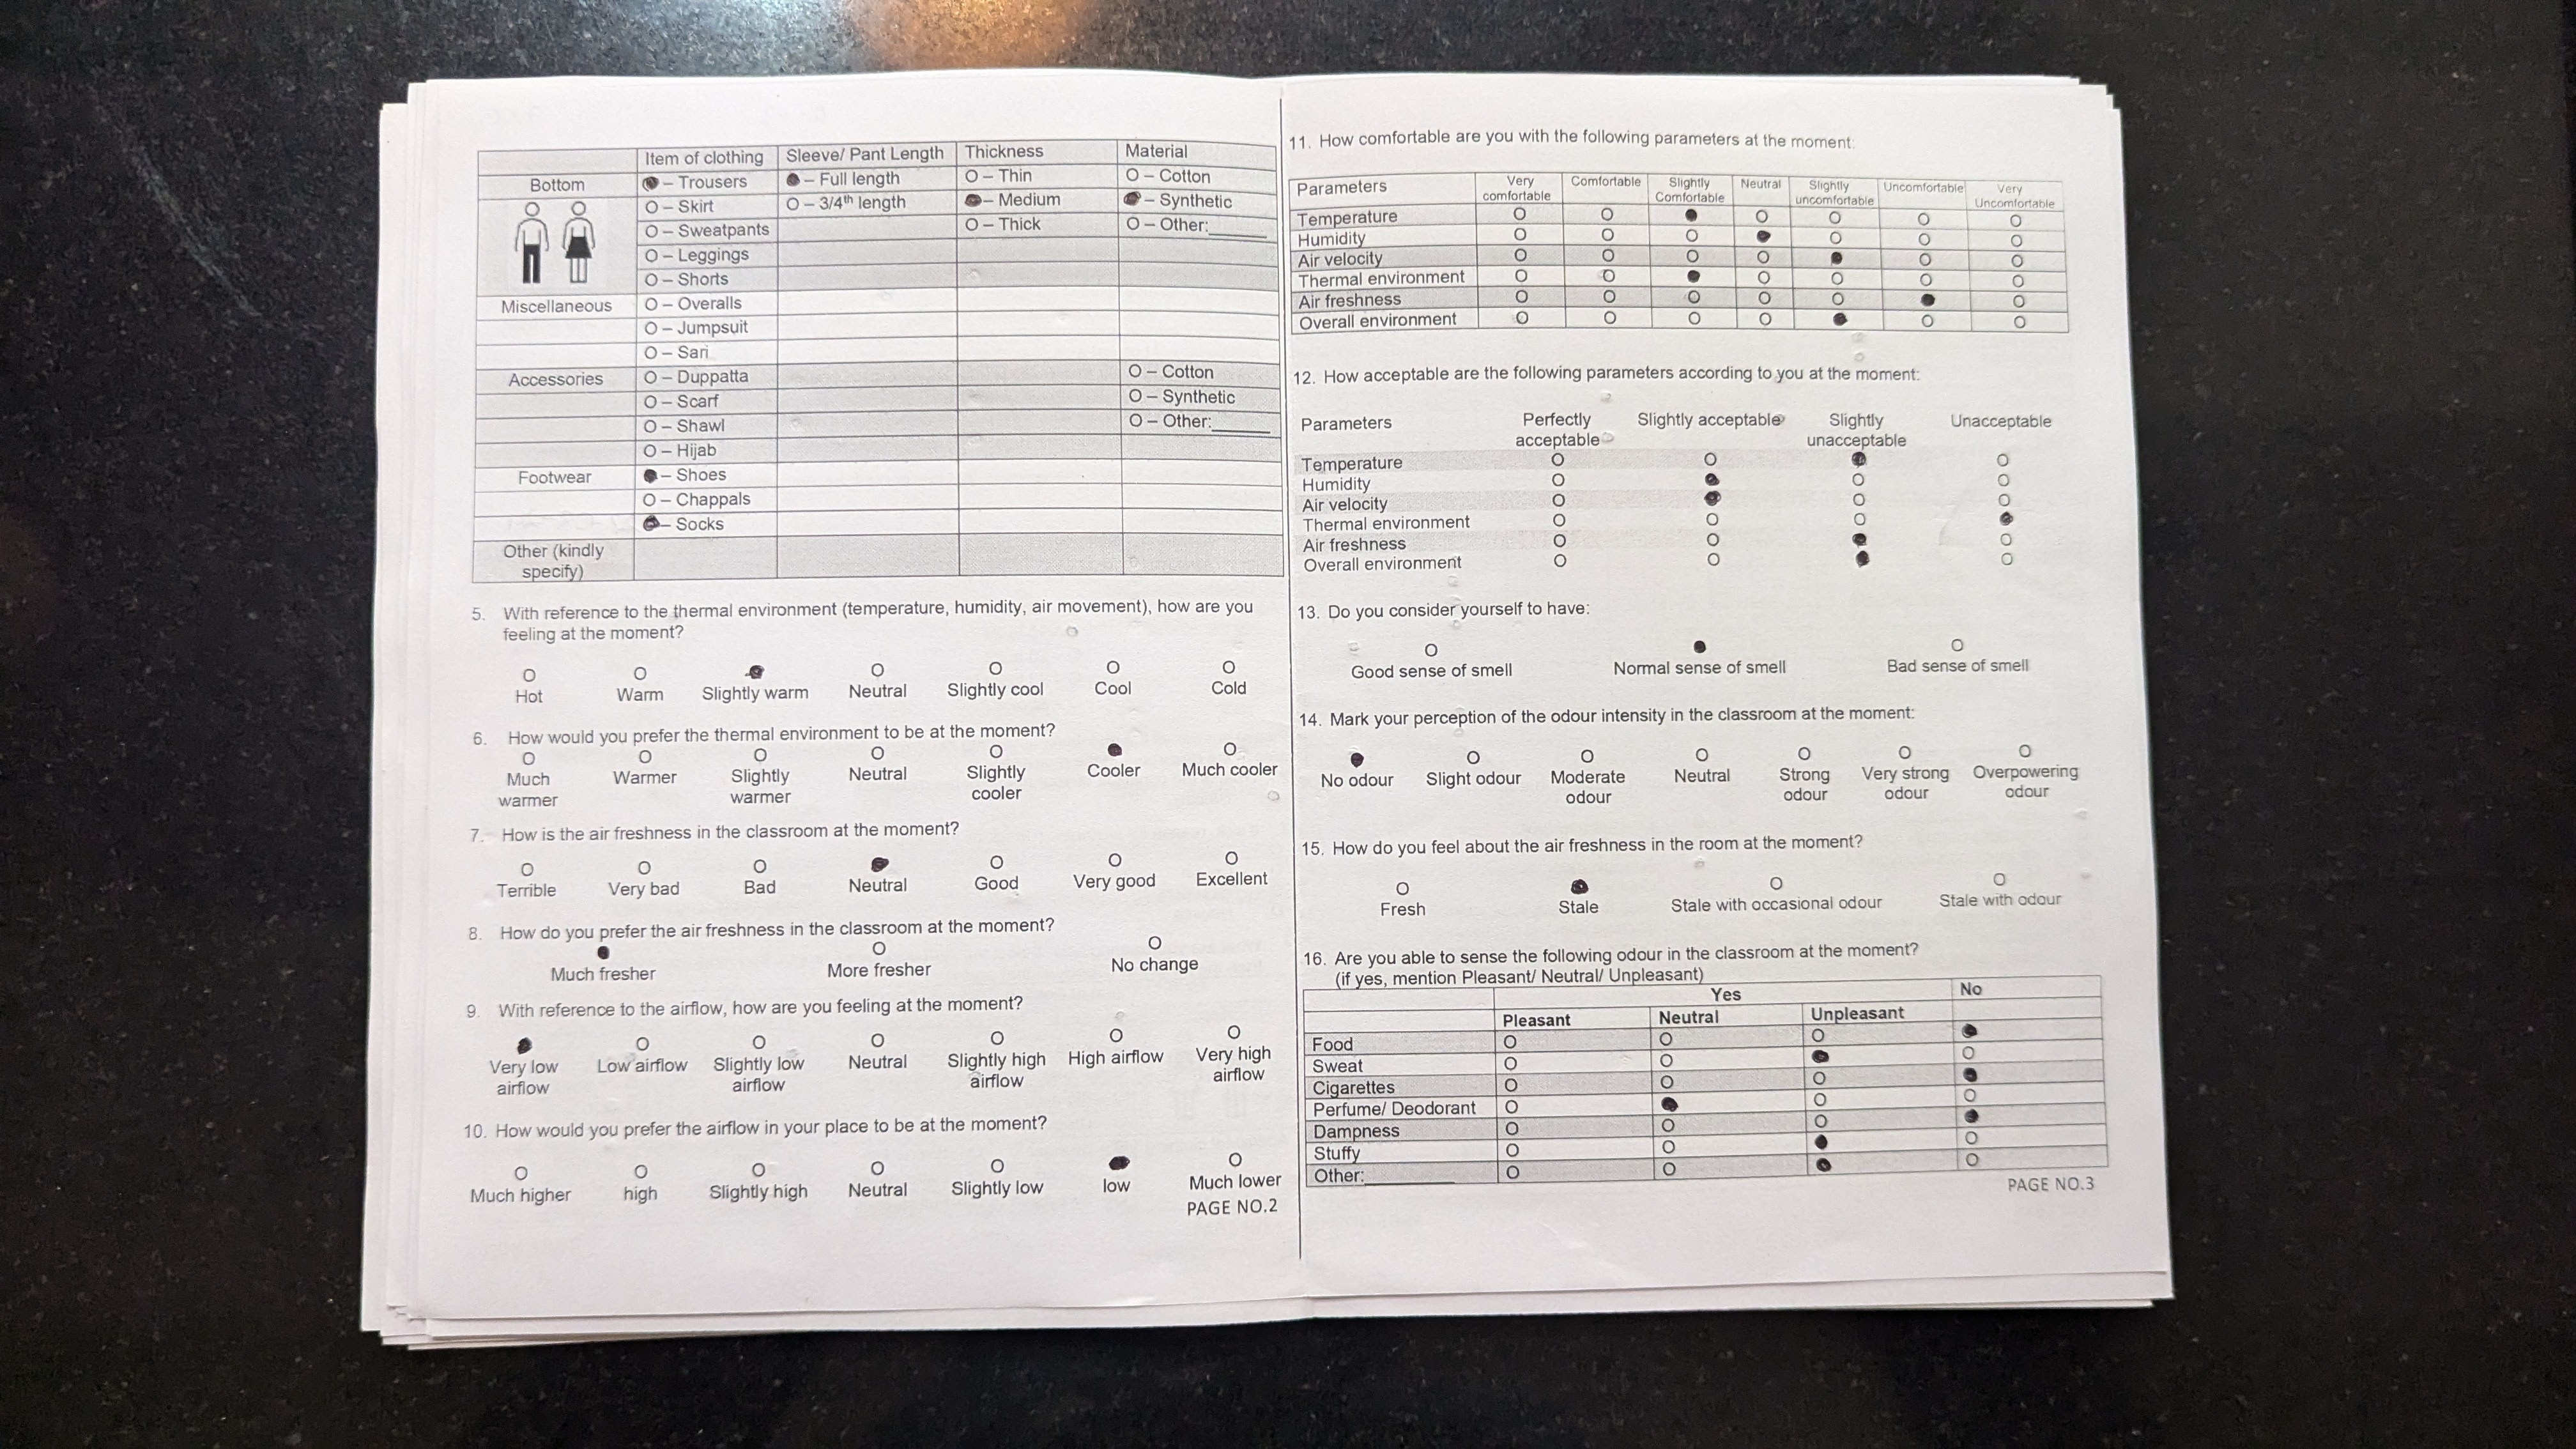 Item of clothing Sleeve/ Pant Length Thickness Material
Bottom ● – Trousers ● – Full length O – Thin O – Cotton
O – Skirt O – 3/4th length ● – Medium ● – Synthetic
O – Sweatpants O – Thick O – Other:______
O – Leggings
O – Shorts
Miscellaneous O – Overalls
O – Jumpsuit
O – Sari
Accessories O – Duppatta O – Cotton
O – Scarf O – Synthetic
O – Shawl O – Other:______
O – Hijab
Footwear ● – Shoes
O – Chappals
● – Socks
Other (kindly
specify)
5. With reference to the thermal environment (temperature, humidity, air movement), how are you
feeling at the moment?
O O ● O O O O
Hot Warm Slightly warm Neutral Slightly cool Cool Cold
6. How would you prefer the thermal environment to be at the moment?
O O O O O ● O
Much Warmer Slightly Neutral Slightly Cooler Much cooler
warmer warmer cooler
7. How is the air freshness in the classroom at the moment?
O O O ● O O O
Terrible Very bad Bad Neutral Good Very good Excellent
8. How do you prefer the air freshness in the classroom at the moment?
● O O
Much fresher More fresher No change
9. With reference to the airflow, how are you feeling at the moment?
● O O O O O O
Very low Low airflow Slightly low Neutral Slightly high High airflow Very high
airflow airflow airflow airflow
10. How would you prefer the airflow in your place to be at the moment?
O O O O O ● O
Much higher high Slightly high Neutral Slightly low low Much lower
PAGE NO.2
11. How comfortable are you with the following parameters at the moment:
Parameters Very Comfortable Slightly Neutral Slightly Uncomfortable Very
comfortable Comfortable uncomfortable Uncomfortable
Temperature O O ● O O O O
Humidity O O O ● O O O
Air velocity O O O O ● O O
Thermal environment O O ● O O O O
Air freshness O O O O O ● O
Overall environment O O O O ● O O
12. How acceptable are the following parameters according to you at the moment:
Parameters Perfectly Slightly acceptable Slightly Unacceptable
acceptable unacceptable
Temperature O O ● O
Humidity O ● O O
Air velocity O ● O O
Thermal environment O O O ●
Air freshness O O ● O
Overall environment O O ● O
13. Do you consider yourself to have:
O ● O
Good sense of smell Normal sense of smell Bad sense of smell
14. Mark your perception of the odour intensity in the classroom at the moment:
● O O O O O O
No odour Slight odour Moderate Neutral Strong Very strong Overpowering
odour odour odour odour
15. How do you feel about the air freshness in the room at the moment?
O ● O O
Fresh Stale Stale with occasional odour Stale with odour
16. Are you able to sense the following odour in the classroom at the moment?
(if yes, mention Pleasant/ Neutral/ Unpleasant)
Yes No
Pleasant Neutral Unpleasant
Food O O O ●
Sweat O O ● O
Cigarettes O O O ●
Perfume/ Deodorant O ● O O
Dampness O O O ●
Stuffy O O ● O
Other:__________ O O ● O
PAGE NO.3